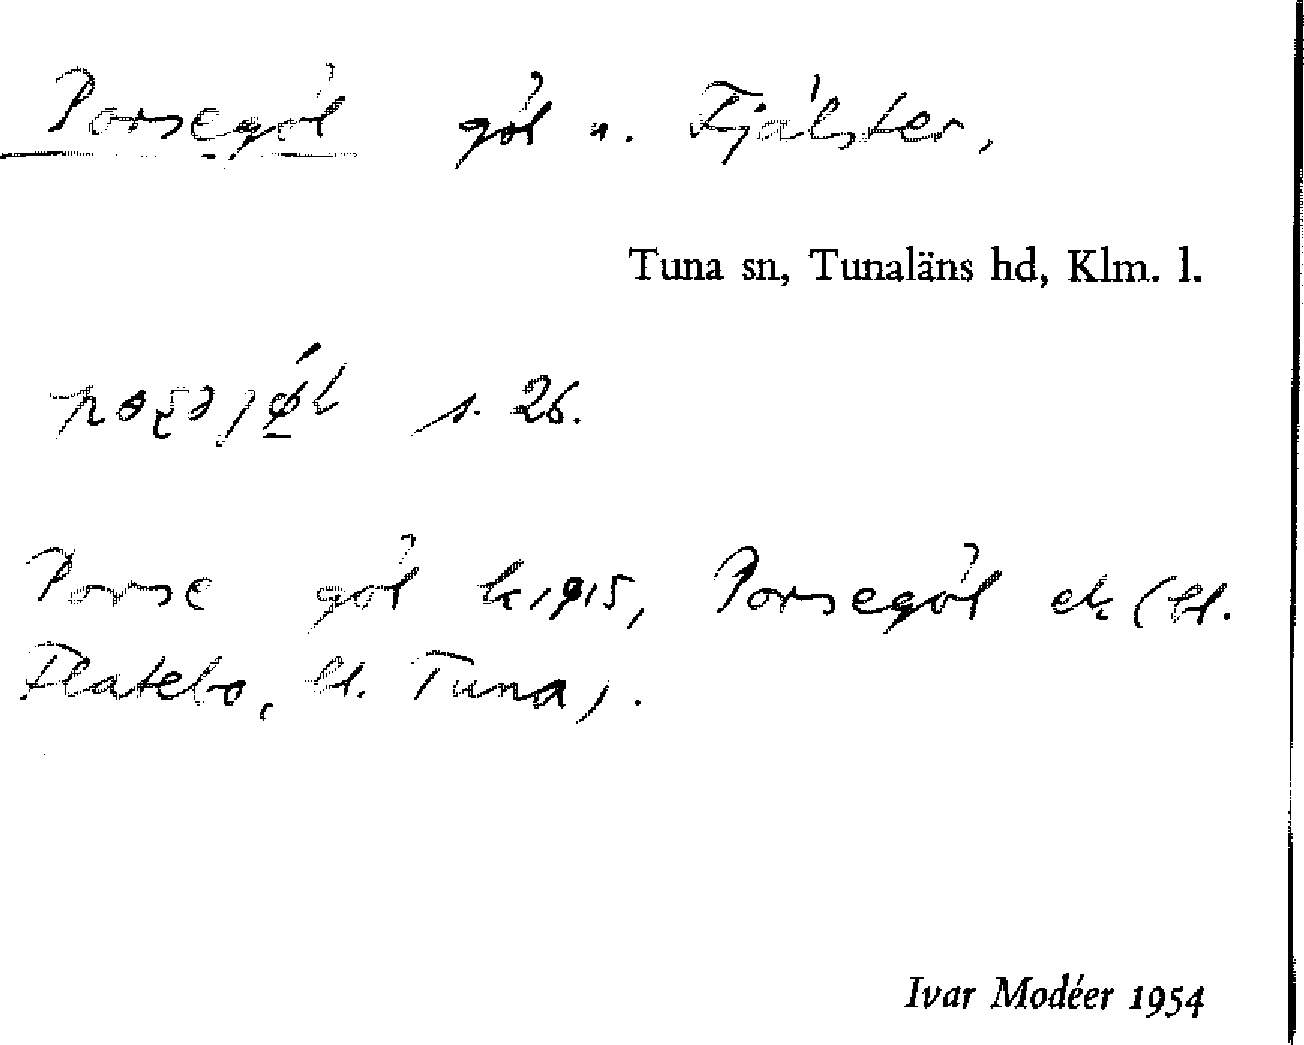 Porsegöl göl n. Fjälster,
Tuna sn, Tunaläns hd, Klm. l.
s. 26.
Porse göl k. 1915, Porsegöl ek (bl.
Flatebo, bl. Tuna).
Ivar Modéer 1954